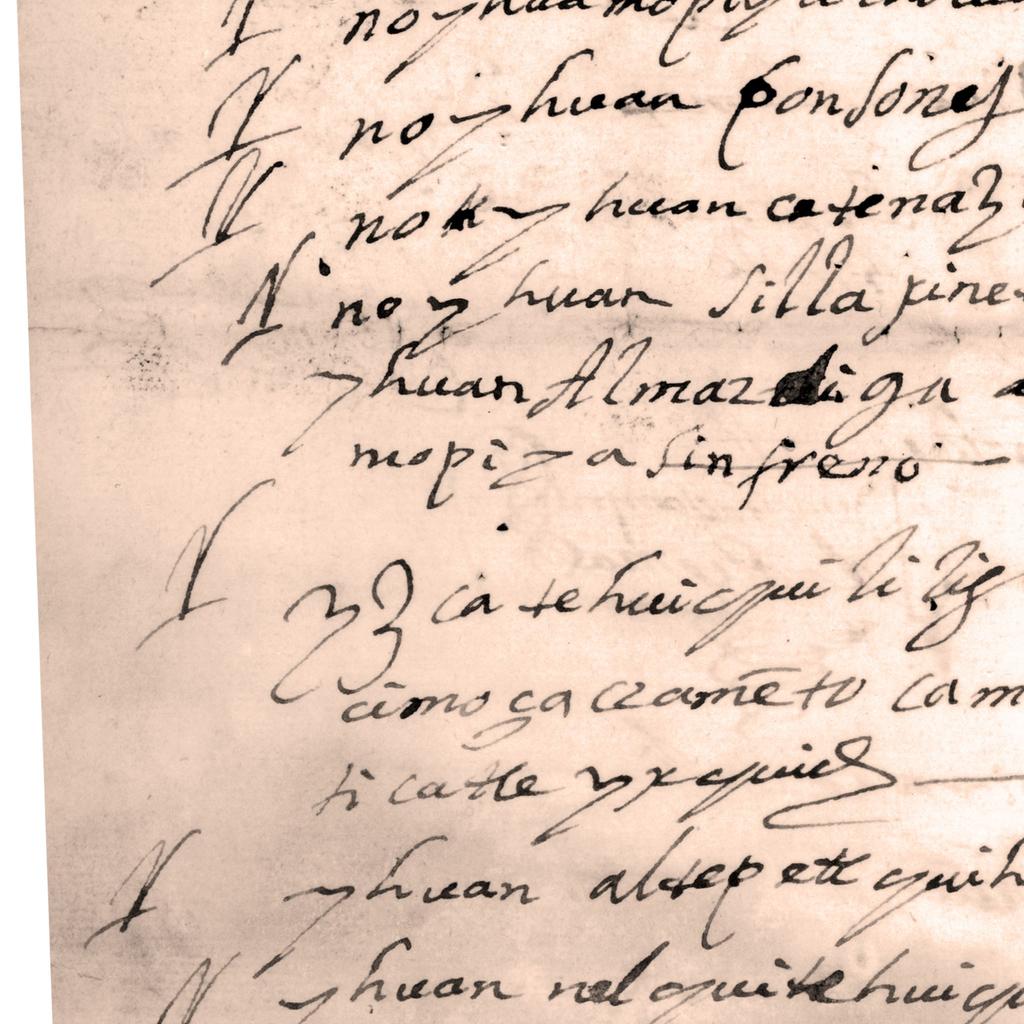 no yhuan
no yhuan ponsones
no yhuan catenaz
no yhuan silla jine
yhuan Almaz diga a
mopiya sin freno
yz catehuiquiliz
çimo çacramēto cam
ticatle yxquich
yhuan altepetl quih
yhuan nel quitehuiqu